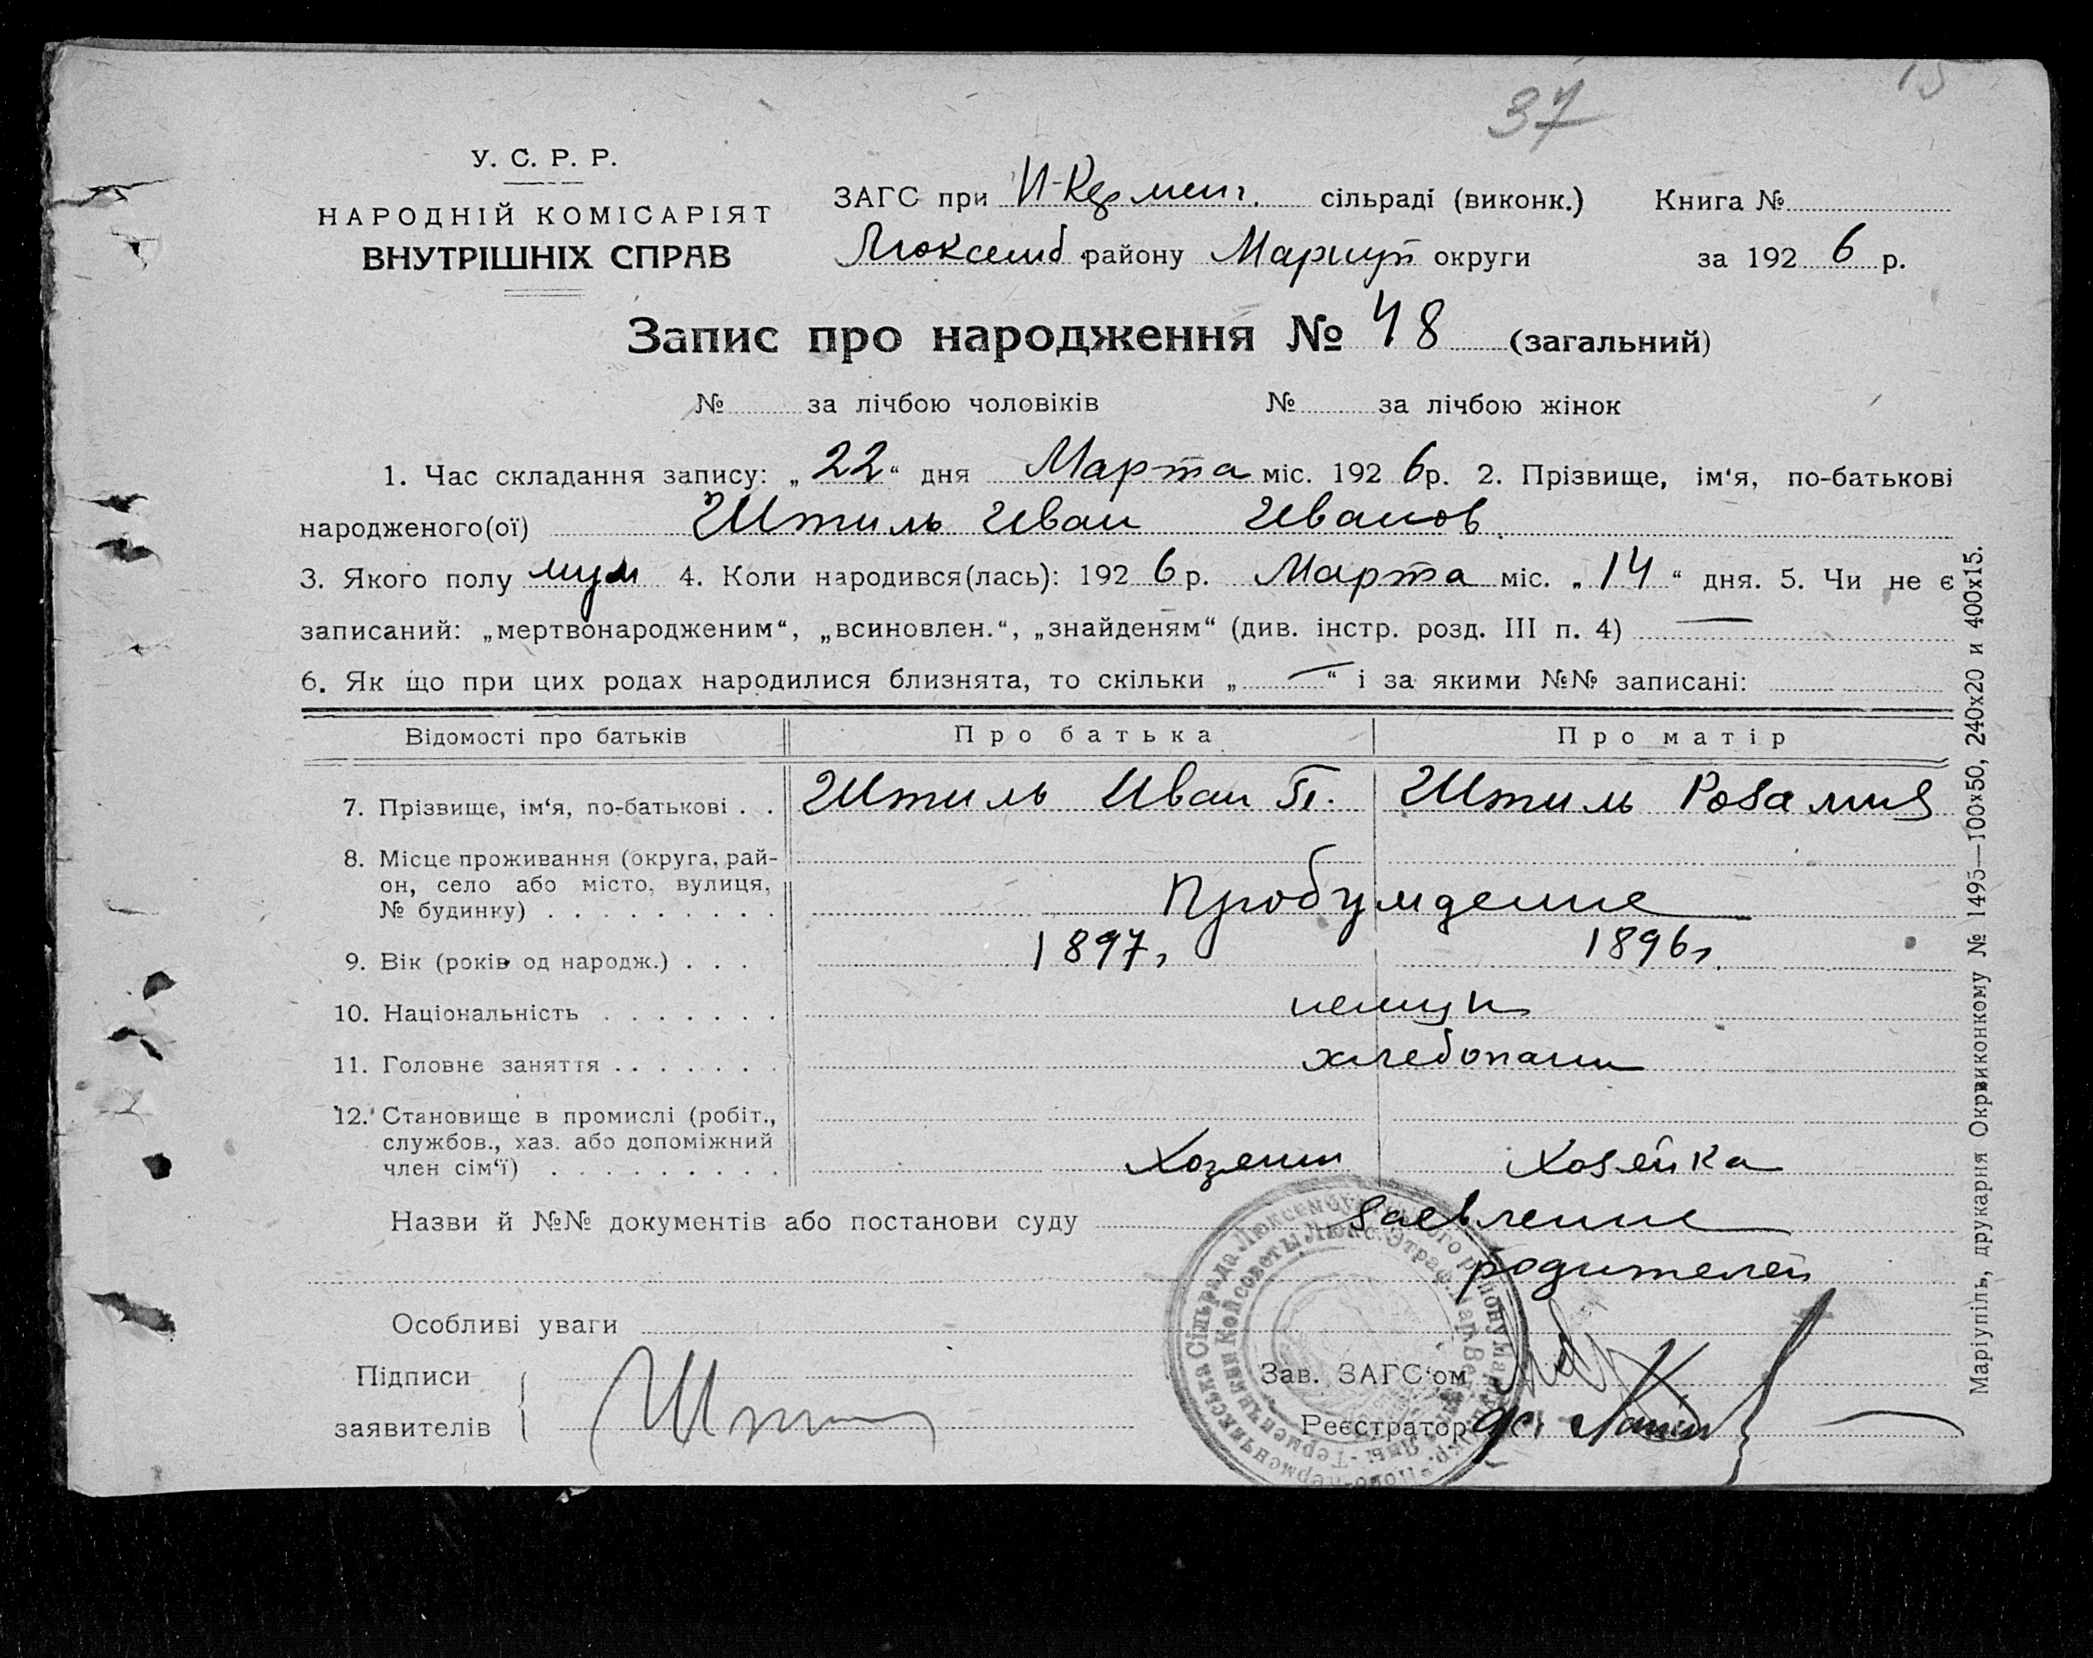 37
15
У. С. Р. Р.
НАРОДНІЙ КОМІСАРІЯТ
ВНУТРІШНІХ СПРАВ
ЗАГС при Н-Керменч. сільраді (виконк.) Книга №
Люксемб району Мариуп округи за 1926 р.
Запис про народження № 48 (загальний)
№ за лічбою чоловіків № за лічбою жінок
1. Час складання запису: „22“ дня Марта міс. 1926р. 2. Прізвище, ім‘я, по-батькові
народженого(ої) Штиль Иван Иванов.
3. Якого полу муж 4. Коли народився(лась): 1926р. Марта міс. „14“ дня. 5. Чи не є
записаний: „мертвонародженим“, „всиновлен.“, „знайденям“ (див. інстр. розд. III п. 4) —
6. Як що при цих родах народилися близнята, то скільки „—“ і за якими №№ записані:
Відомості про батьків Про батька Про матір
7. Прізвище, ім‘я, по-батькові . . Штиль Иван П. Штиль Розалия
8. Місце проживання (округа, рай-
он, село або місто, вулиця,
№ будинку) . . . . . . . . . Пробуждение
9. Вік (років од народж.) . . . 1897г 1896г.
10. Національність . . . . . . . немцы
11. Головне заняття . . . . . . . хлебопаш
12. Становище в промислі (робіт.,
службов., хаз. або допоміжний
член сім‘ї) . . . . . . . . . Хозеин Хозейка
Назви й №№ документів або постанови суду заевление
родителей
Особливі уваги
Підписи
заявителів
Шт
Зав. ЗАГС‘ом
Реєстратор
Маріупіль, друкарня Окрвиконкому № 1495—100х50, 240х20 и 400х15.